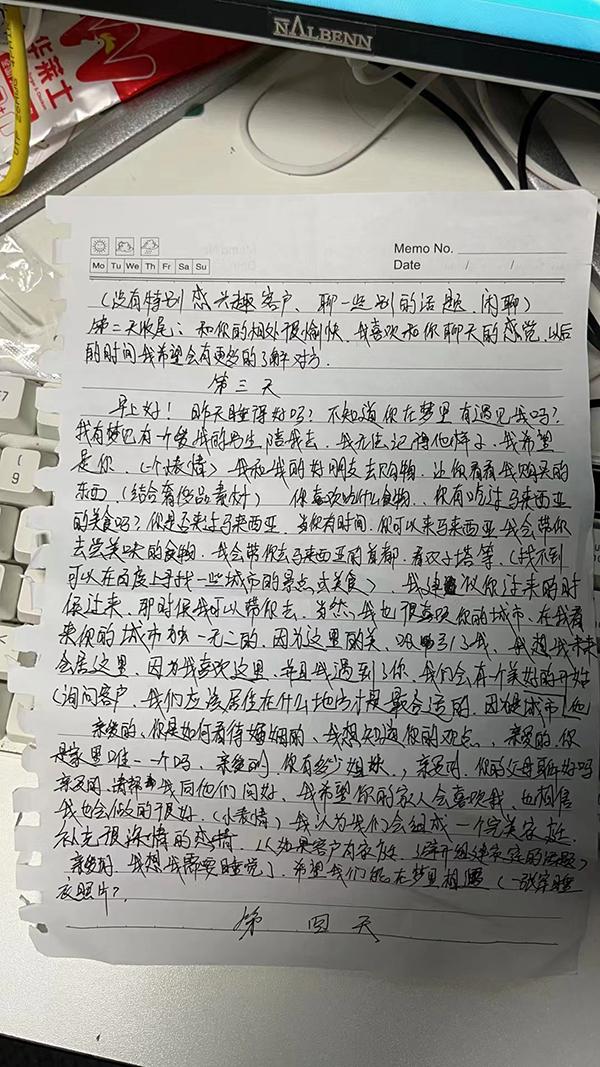 NALBENN
华莱士
Memo No.
Mo Tu We Th Fr Sa Su
Date / /
(没有特别感兴趣客户、聊一些别的话题.闲聊)
第二天收尾:和你的相处很愉快.我喜欢和你聊天的感觉.以后
的时间我希望会有更多的了解对方.
第三天
早上好!昨天睡得好吗?不知道你在梦里有遇见我吗?
我有梦见有一个 我的男生陪我去.我无法记得他样子.我希望
是你.(一个表情)我和我的好朋友去购物.让你看看我购买的
东西(结合奢侈品素材)你喜欢吃什么食物..你有吃过马来西亚
的美食吗?你是否来过马来西亚.当你有时间.你可以来马来西亚我会带你
去尝美味的食物.我会带你去马来西亚的首都.看双子塔等.(找不到
可以在百度上寻找一些城市的景点或美食).我建议你过来的时
候过来.那时候我可以带你去.当然.我也很喜欢你的城市.在我看
来你的城市独一无二的.因为这里的美.吸引了我.我想我未来
会居这里.因为我喜欢这里.并且我遇到了你.我们会有个美好的开始
(询问客户.我们应该居住在什么地方才是最合适的.因为是城市
亲爱的、你是如何看待婚姻的、我想知道你的观点、.亲爱的.你
是家里唯一一个吗.亲爱的.你有多少姐妹.,亲爱的.你的父母 好吗
亲爱的.请帮我同他们问好、我希望你的家人会喜欢我.也相信
我也会做的很好.(小表情)我认为我们会组成一个完美家庭.
补充很深情的感情. 如果客户有家庭.避开组建家庭的话题)
亲爱的.我想我需要睡觉了.希望我们能在梦里相遇(一张穿睡
衣照片?
第四天